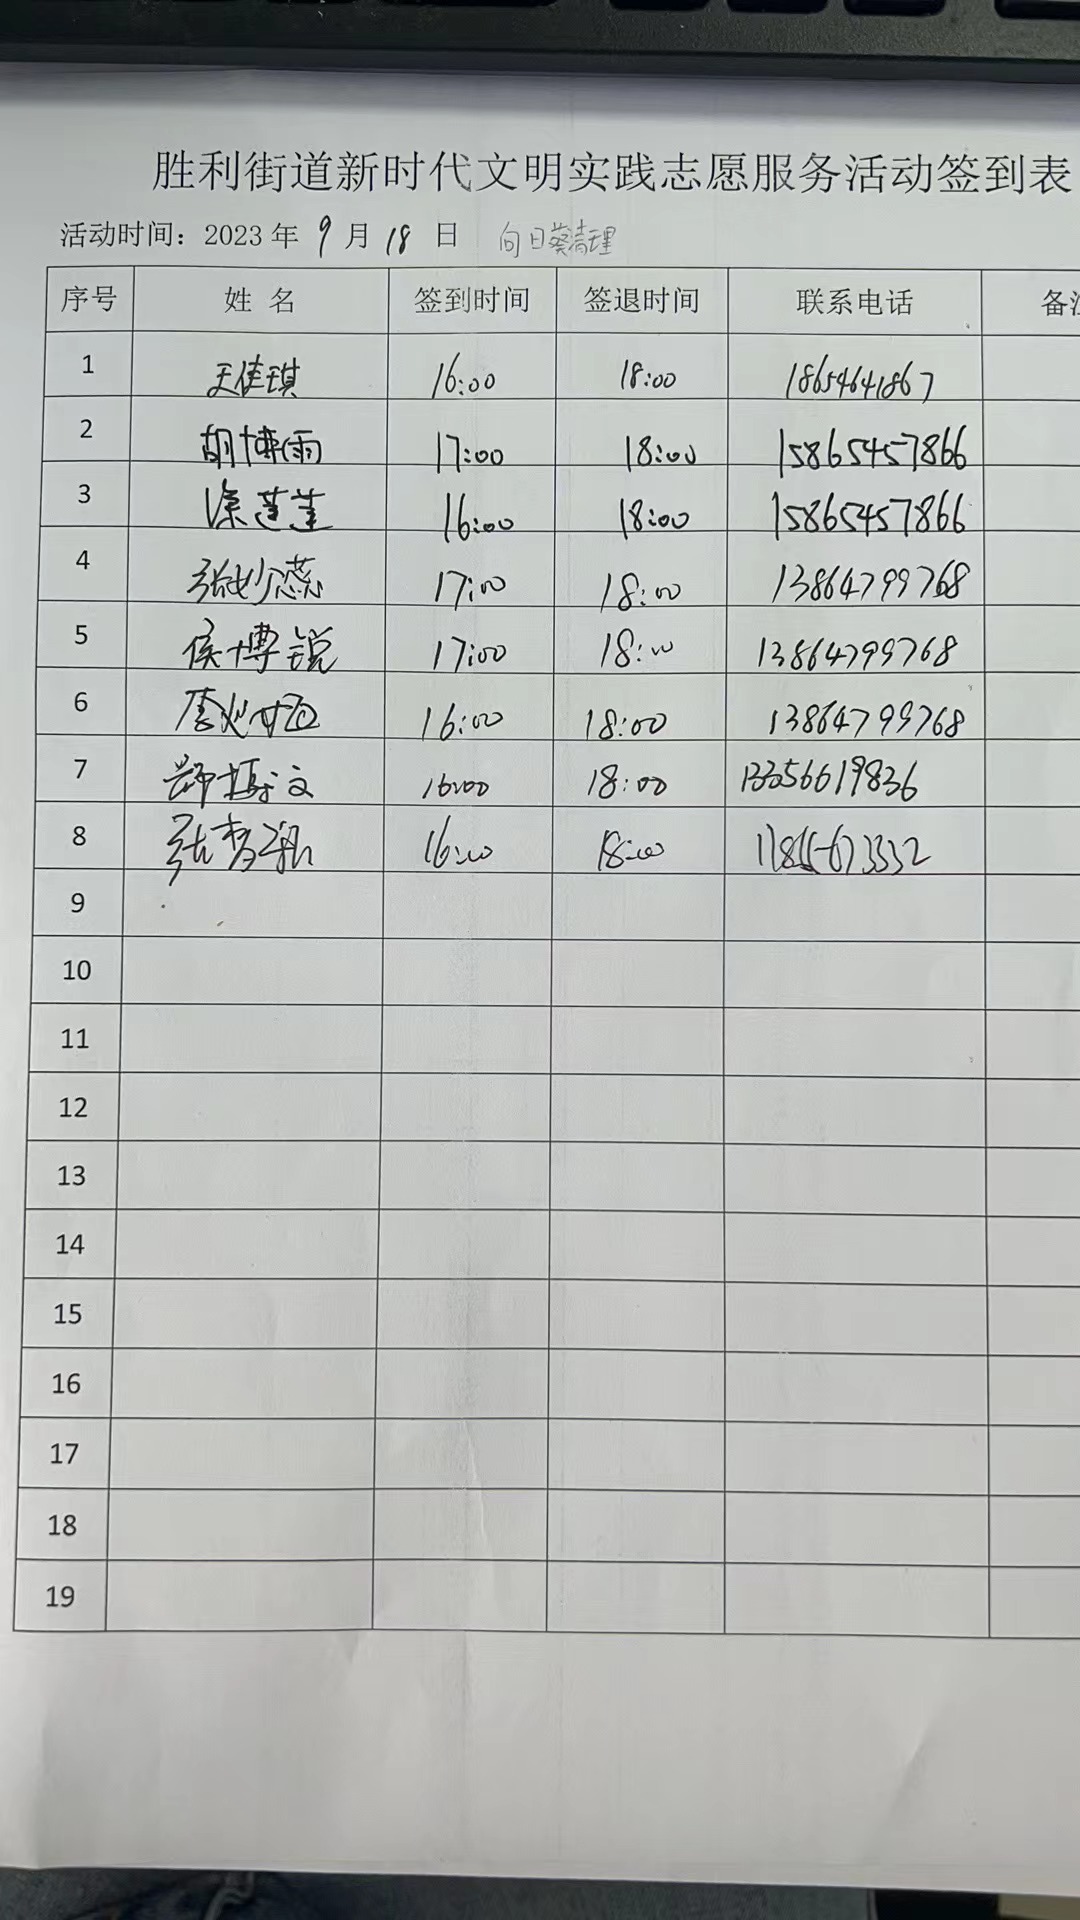 胜利街道新时代文明实践志愿服务活动签到表
活动时间：2023 年 9 月 18 日 向日葵清理
序号 姓 名 签到时间 签退时间 联系电话 备注
1 王佳琪 16:00 18:00 18654641867
2 胡博雨 17:00 18:00 15865457866
3 莲莲 16:00 18:00 15865457866
4 张妙蕊 17:00 18:00 13864799768
5 侯博锐 17:00 18:00 13864799768
6 16:00 18:00 13864799768
7 郑博文 16:00 18:00 13356619836
8 张 16:00 18:00
9
10
11
12
13
14
15
16
17
18
19